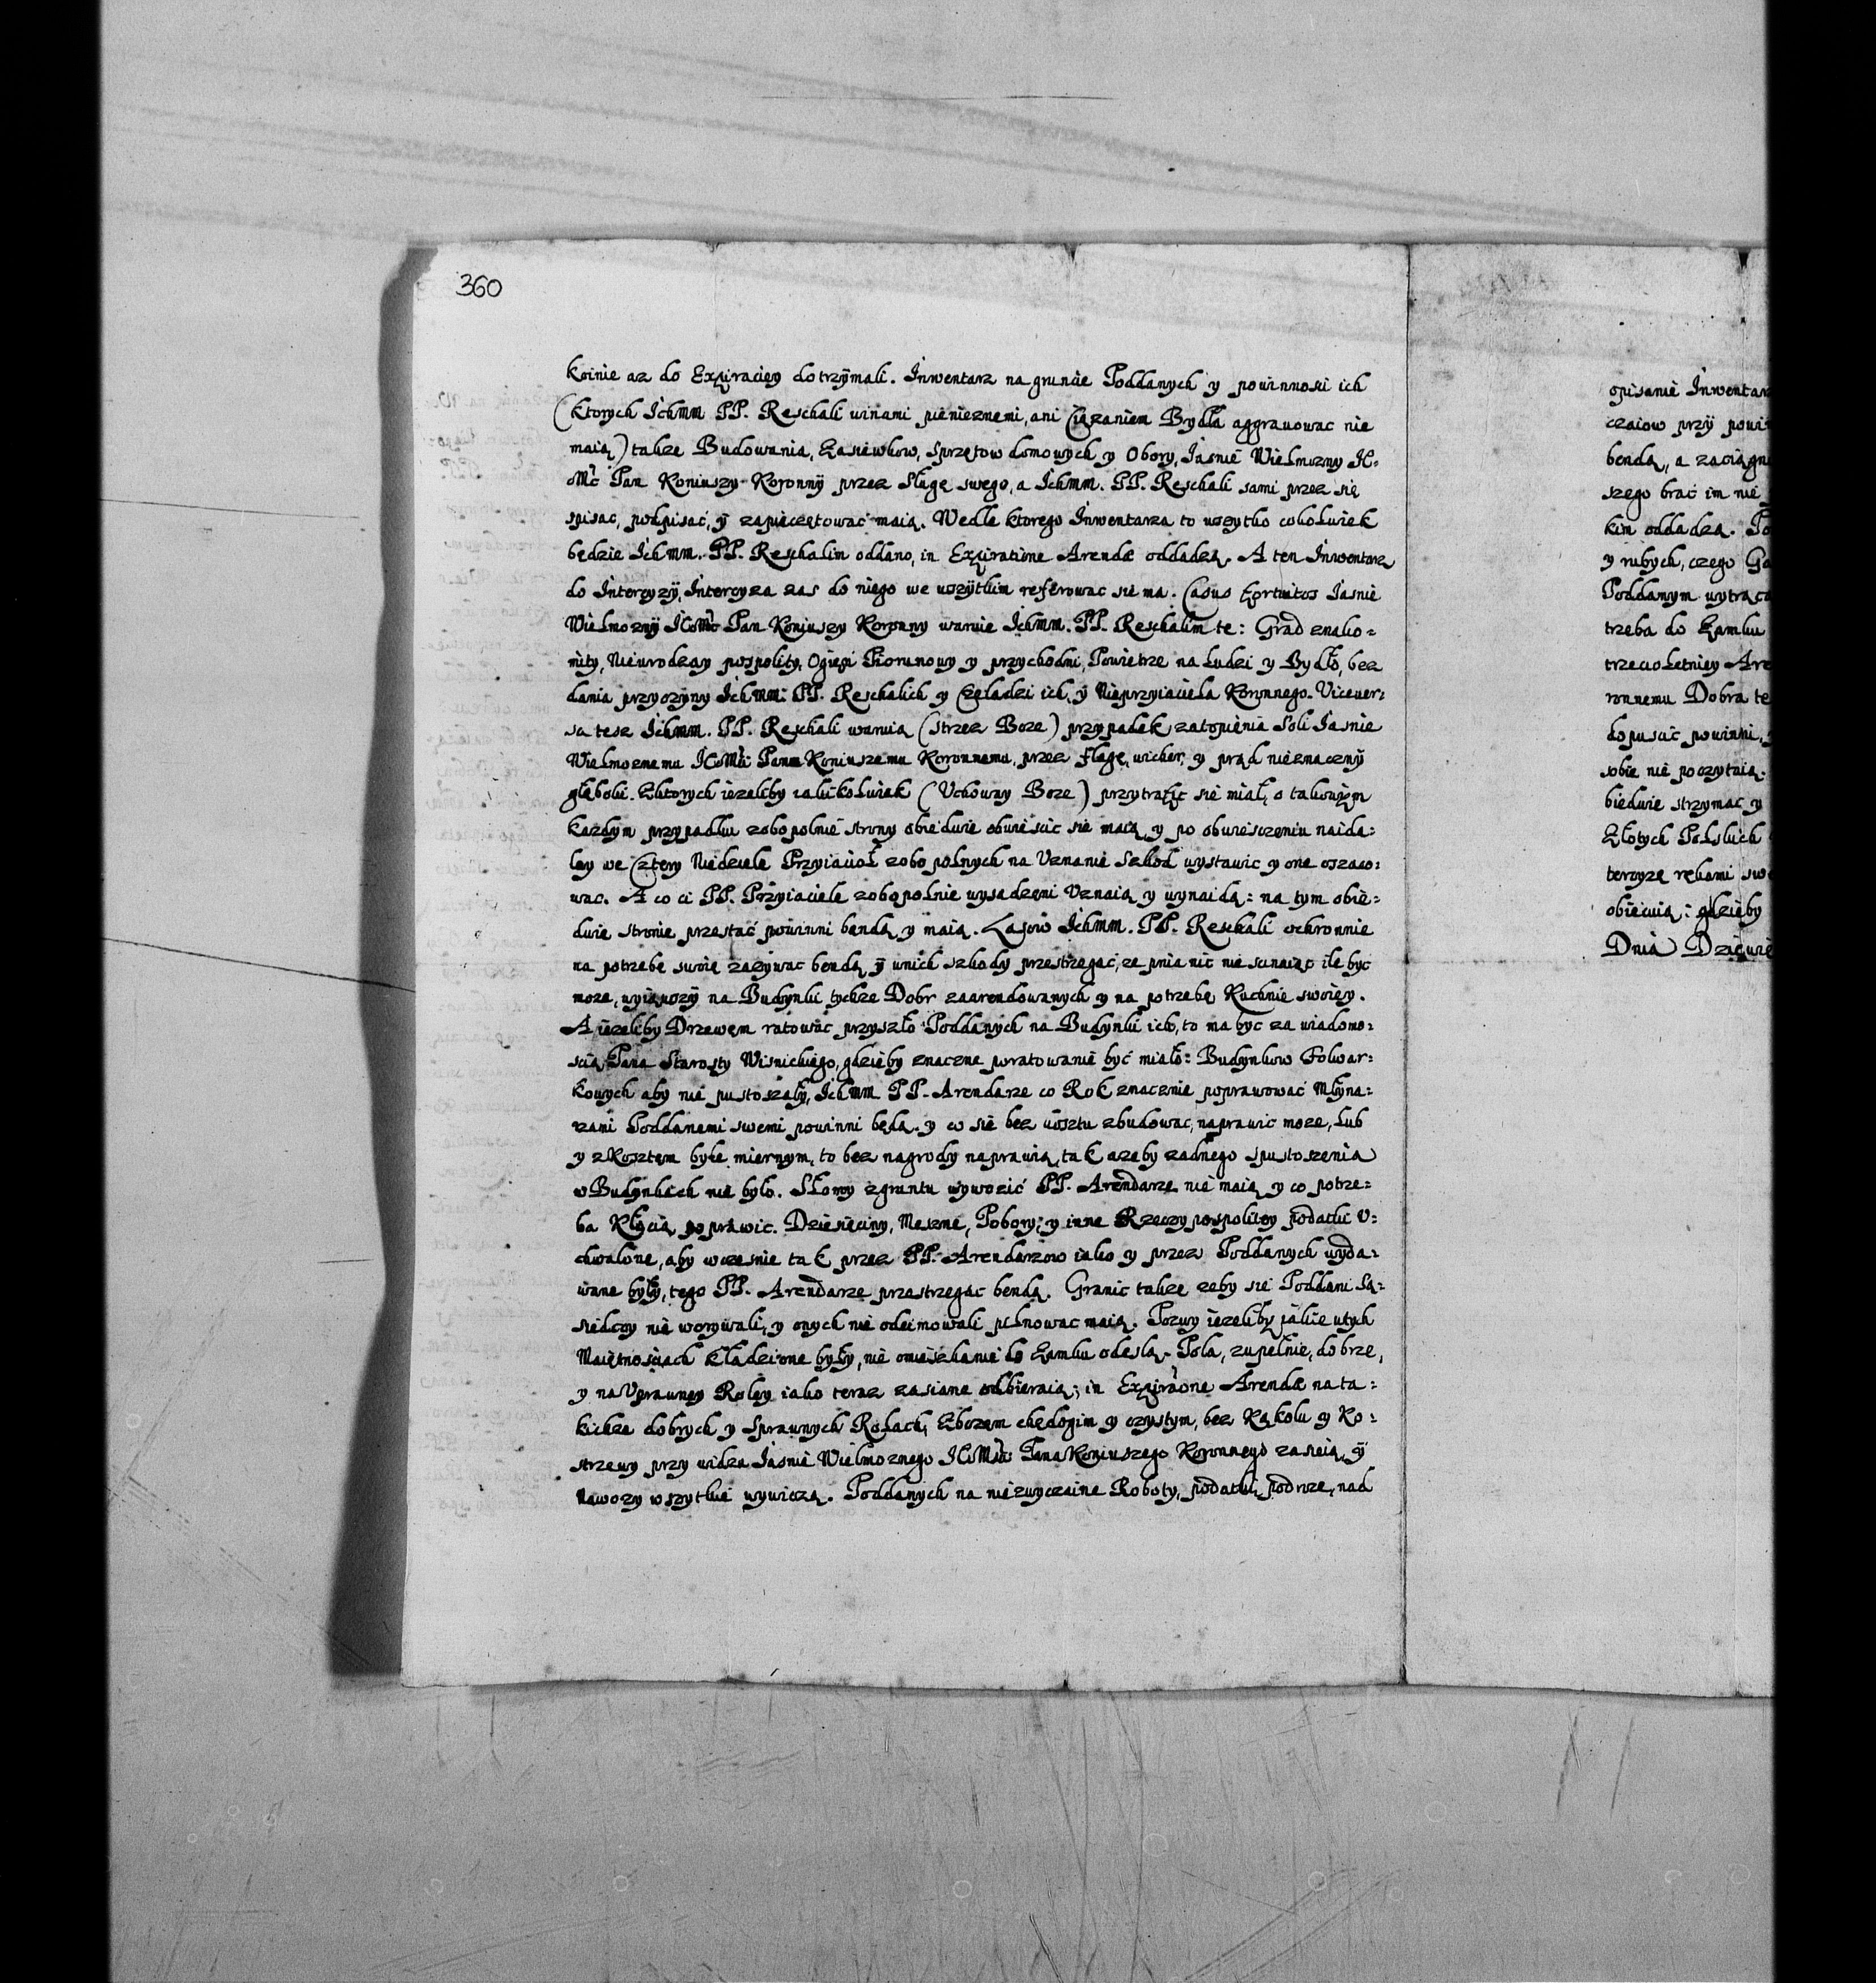 360
koinie az do Expiraciey dotrzymali. Inwentarz na gruncie Poddanych y powinnosci ich
(ktorych Ichmm PP. Reschali winami pienieznemi, ani Ciązaniem Bydła aggrauowac nie
maią) takze Budowania, Zasiewkow, Sprzętow domowych y Obory, Iasnie Wielmozny IE=
oMć Pan Koniuszy Koronny przez Sługę swego, a Ichmm. PP. Reschali sami przez się
spisac, podpisać, y zapieczętować maią. Wedle ktorego Inwentarza to wszytko cokolwiek
będzie Ichmm. PP. Reschalim oddano, in Expiratione Arendæ oddadzą. A ten Inwentarz
do Intercyzy, Intercyza zas do niego we wszytkim referowac sie ma. Casus Fortuitos Iasnie
Wielmozny Pan Koniuszy Koronny waruie Ichmm. PP. Reschalim te: Grad znako=
mity, Nieurodzay pospolity, Ogień Piorunowy y przychodni, Powietrze na Ludzi y Bydło, bez
dania przyczyny Ichmm. PP. Reschalich y Czeladzi ich, y Nieprzyiaciela Koronnego. Viceuer=
sa tesz Ichmm. PP. Reschali waruią (Strzez Boze) przypadek zatopienia Soli Iasnie
Wielmoznemu Panu Koniuszemu Koronnemu, przez flagę, wicher, y prąd nieznaczny
głęboki. Zktorych iezeliby iakikolwiek (Uchoway Boze) przytrafić sie miał, o takowym
kazdym przypadku zobopolnie strony obiedwie obwiescic sie maią, y po obwiesczeniu naida=
ley we Cztery Niedziele Przyiacioł zobopolnych na Uznanie Szkod wystawic y one oszaco=
wac. A co ci PP. Przyiaciele zobopolnie wysadzeni Uznaią y wynaidą: na tym obie=
dwie stronie przestać powinni bendą y maią. Lasow Ichmm. PP. Reschali ochronnie
na potrzebę swoię zazywac bendą y wnich szkody przestrzegać, ze pnia nic nie scinaiąc ile byc
moze, wyiąwszy na Budynki tychze Dobr zaarendowanych y na potrzebę Kuchnie swoiey.
A iezeliby Drzewem ratowac przyszło Poddanych na Budynki ich, to ma byc za wiadomo=
scią Pana Starosty Wisnickiego, gdzieby znaczne poratowanie być miało: Budynkow Folwar=
kowych aby nie pustoszały, Ichmm PP. Arendarze co Rok znacznie poprawować Młyna=
rzami Poddanemi swemi powinni będą. y co się bez kosztu zbudowac, naprawic moze, Lub
y zKosztem byłe miernym, to bez nagrody naprawią, tak azeby zadnego spustoszenia
wBudynkach nie było. Słomy zgruntu wywozić PP. Arendarze nie maią y co potrze=
ba poprawic. Dziesięciny, Meszne, Pobory, y inne Rzeczypospolitey podatki U=
chwalone, aby wczesnie tak przez PP. Arendarzow iako y przez Poddanych wyda=
wane były, tego PP. Arendarze przestrzegac bendą. Granic takze zeby sie Poddani Są=
siedzcy nie worywali, y onych nie odeimowali pilnowac maią. Pozwy iezeliby iakie wtych
Maiętnosciach kładzione były, nie omieszkanie do Zamku odeslą. Pola, zupełnie, dobrze,
y na Uprawney Roley iako teraz zasiane odbieraią; in Expiraone Arendæ na ta=
kichze dobrych y Sprawnych Rolach, Zbozem chędogim y czystym, bez Kąkolu y Ko=
strzewy przy widza Iasnie Wielmoznego Pana Koniuszego Koronnego zasieią, y
Nawozy wszytkie wywiozą. Poddanych na niezwyczaine Roboty, podatki, podroze, nad
opisanie Inwentar
czaiow przy powi
bendą, a zaciągn
szego brać im nie
kim oddadzą. Po
y rubych, czego
Poddanym wytrąca
trzeba do Zamku
trzecio Letniey Are
ronnemu Dobra te
dopuscic powinni,
sobie nie poczytaią.
biedwie strzymac y
Złotych Polskich
tercyzę rękami sw
obiecuią: gdzieby
Dnia Dziewię